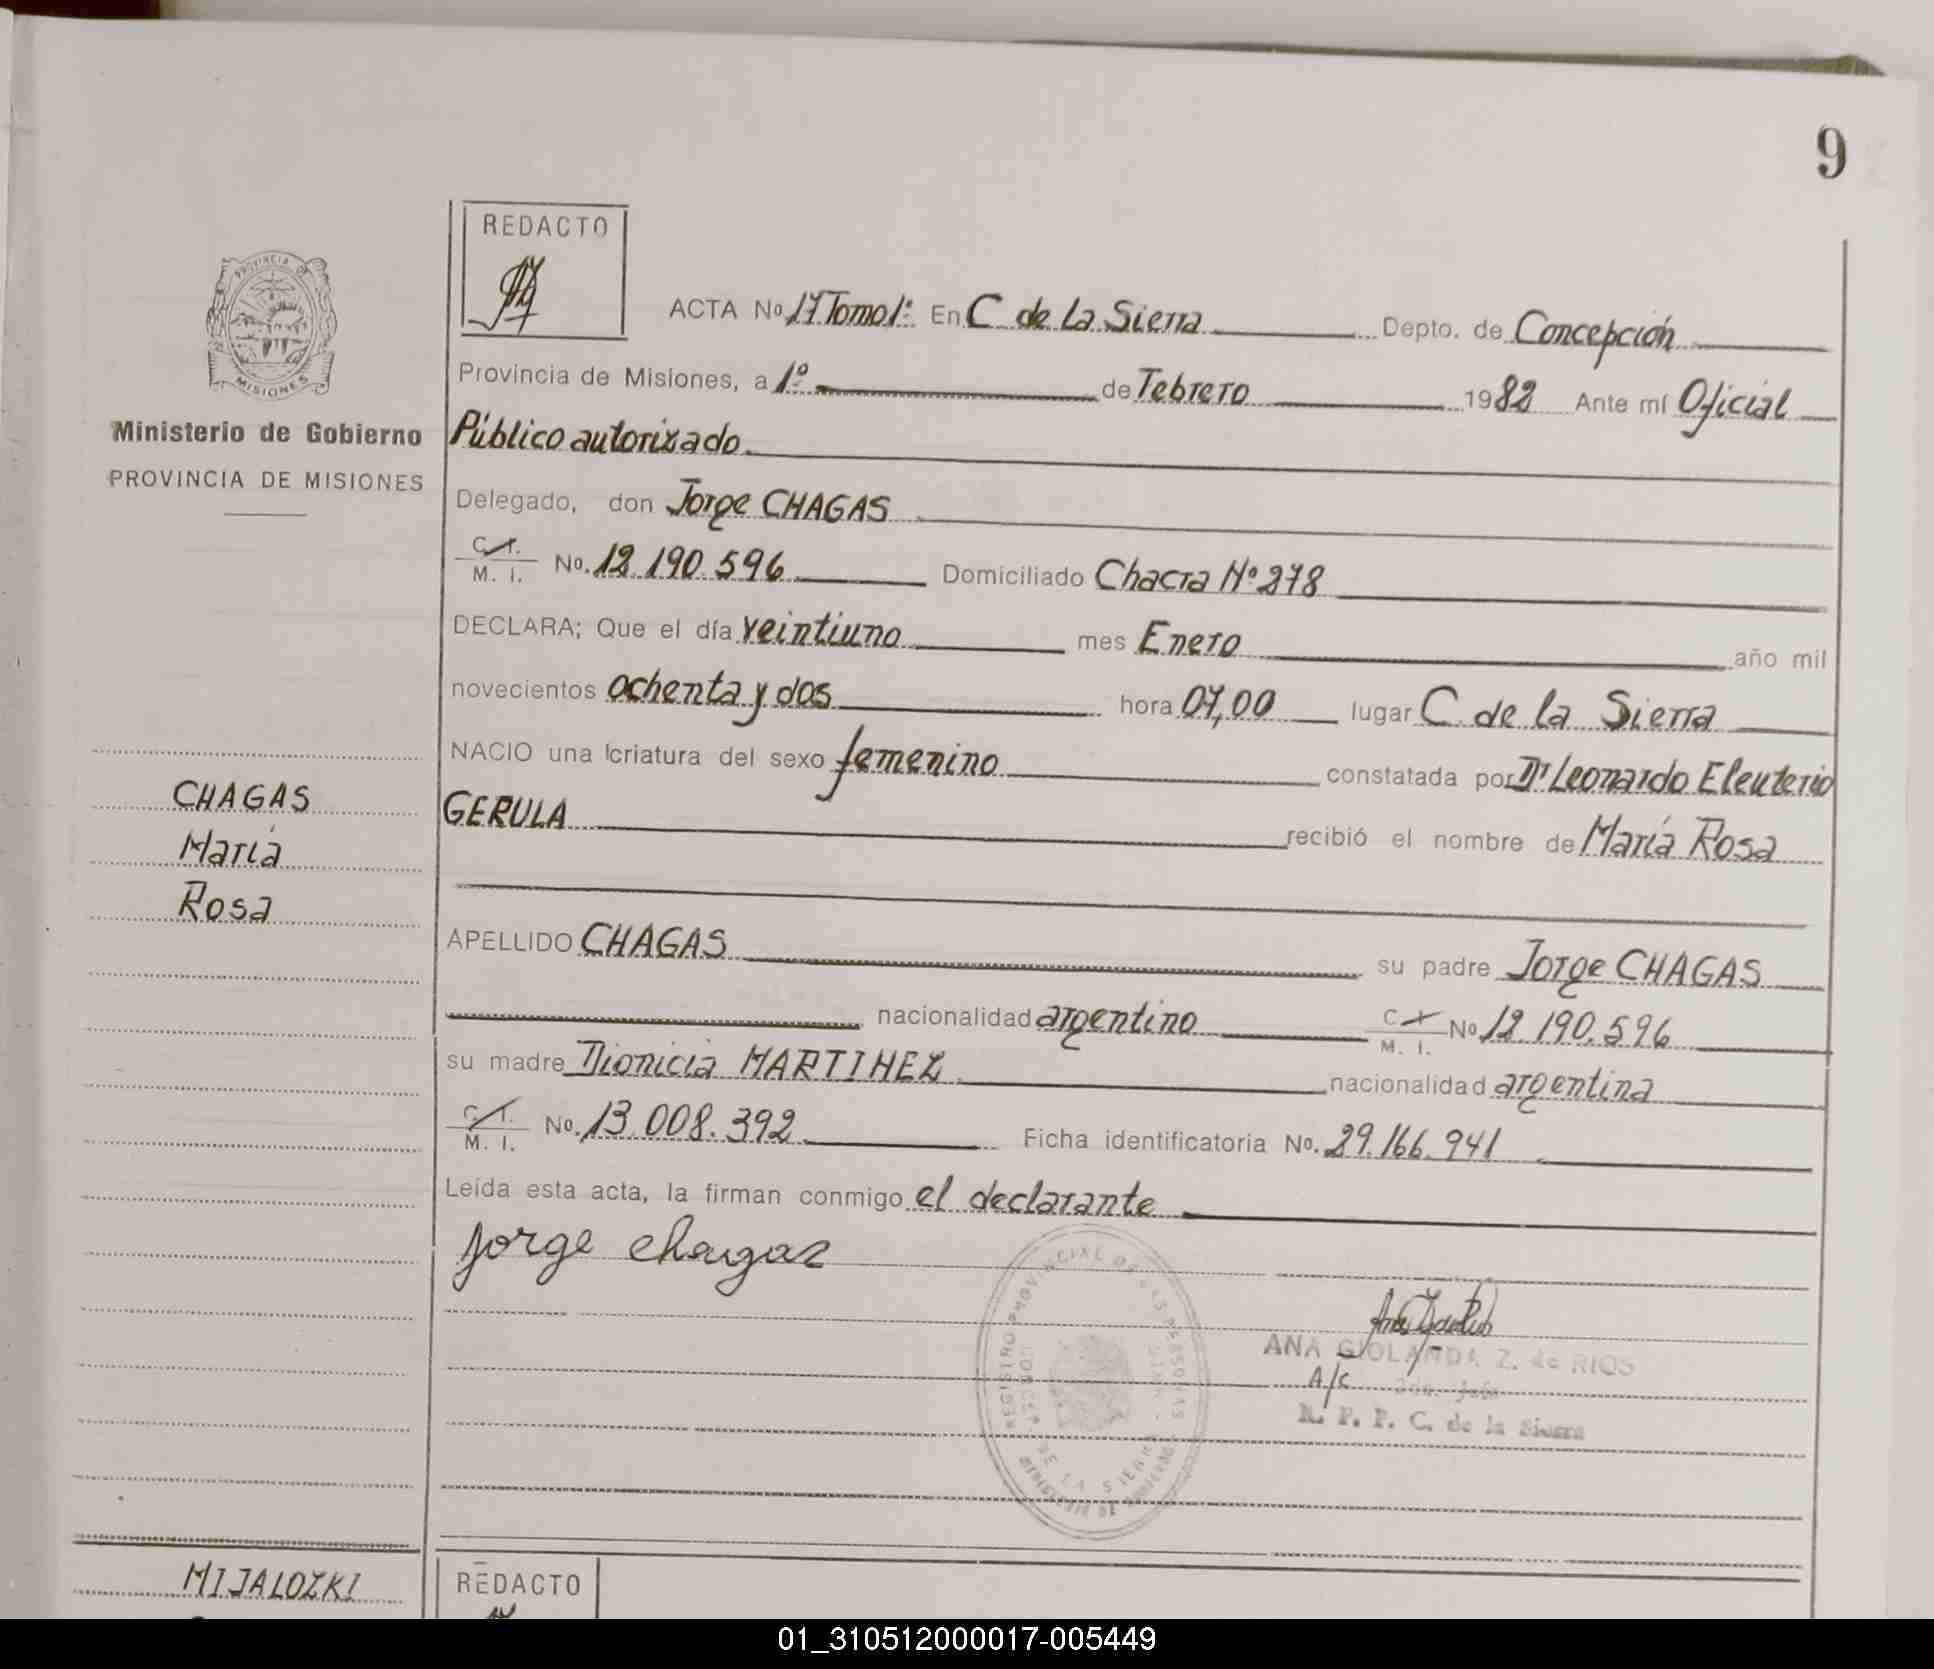 9
REDACTO
PROVINCIA DE
MISIONES
Ministerio de Gobierno
PROVINCIA DE MISIONES
ACTA No 17 Tomo 1º En C de La Sierra Depto. de Concepción
Provincia de Misiones, a 1º de Febrero 1982 Ante mí Oficial
Público autorizado
Delegado, don Jorge CHAGAS
C. I.
M. I. No. 12.190.596 Domiciliado Chacra Nº 278
DECLARA; Que el día veintiuno mes Enero año mil
novecientos ochenta y dos hora 07,00 lugar C. de la Sierra
NACIO una criatura del sexo femenino constatada por Dr Leonardo Eleuterio
GERULA recibió el nombre de María Rosa
CHAGAS
María
Rosa
APELLIDO CHAGAS su padre Jorge CHAGAS
nacionalidad argentino C. I.
M. I. No 12.190.596
su madre Dionicia MARTINEZ nacionalidad argentina
C. I.
M. I. No. 13.008.392 Ficha identificatoria No. 29.166.941
Leída esta acta, la firman conmigo el declarante
Jorge Chagas
REGISTRO PROVINCIAL DE LAS PERSONAS
DE LA SIERRA
MINISTERIO DE GOBIERNO
ANA GIOLANDA Z. de RIOS
A/c
R. P. P. C. de la Sierra
MIJALOZKI
REDACTO
01_310512000017-005449